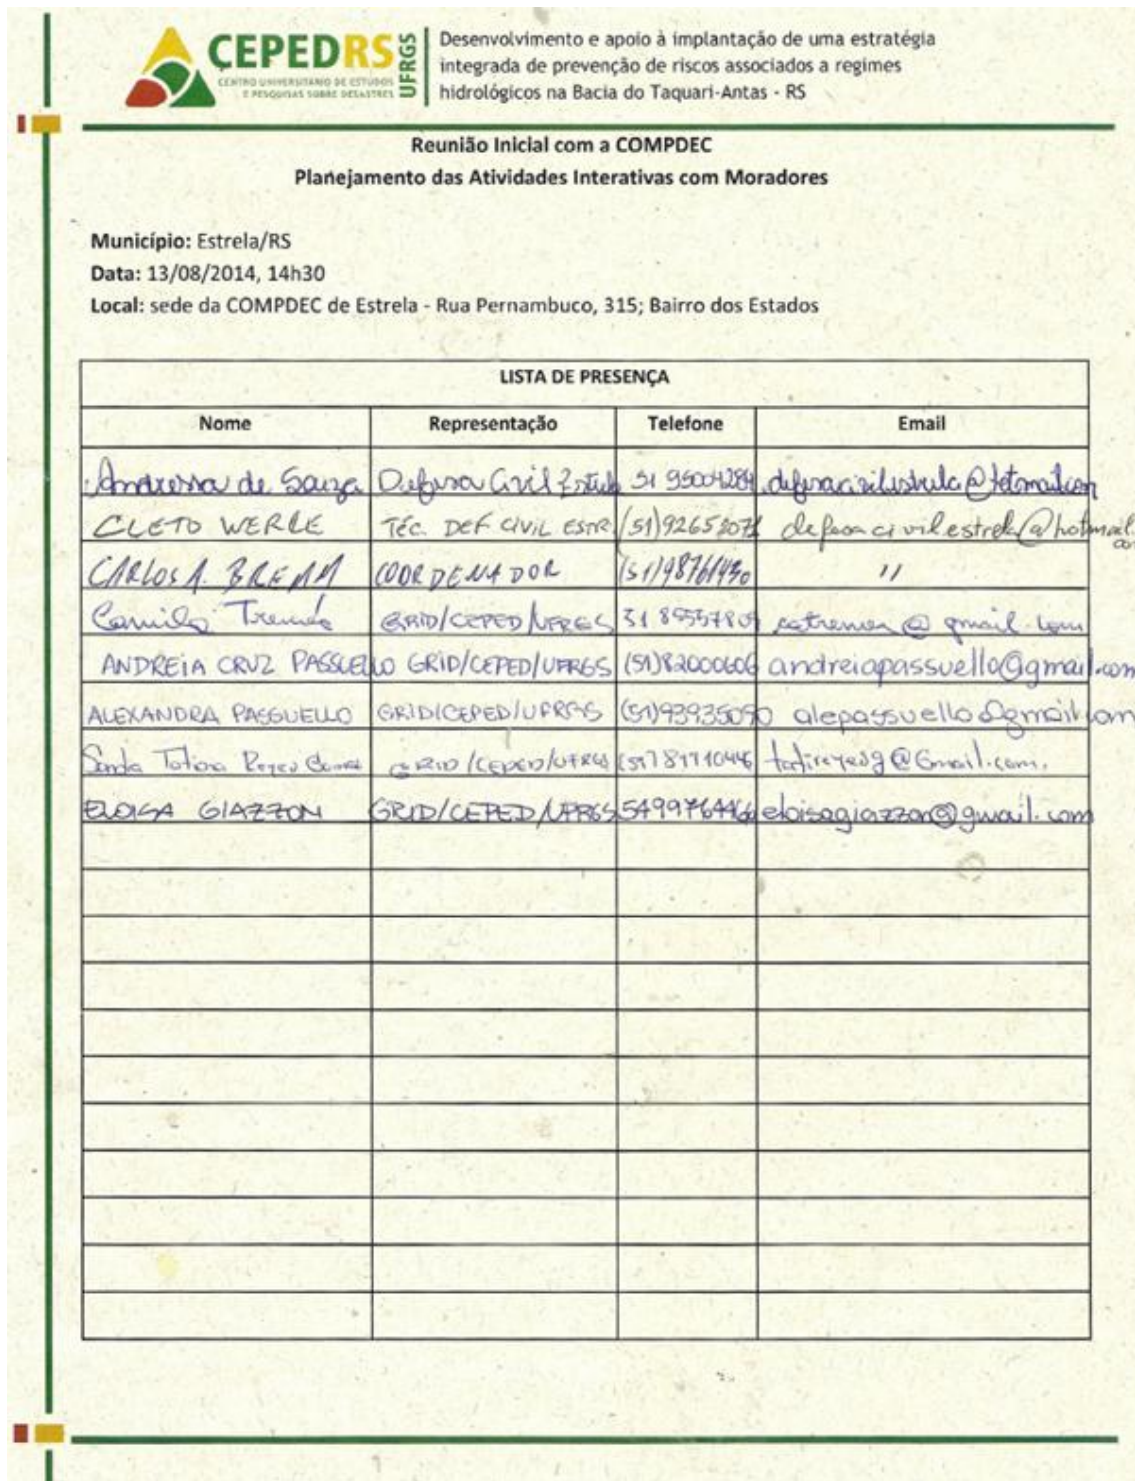 CEPEDRS UFRGS
CENTRO UNIVERSITÁRIO DE ESTUDOS
E PESQUISAS SOBRE DESASTRES
Desenvolvimento e apoio à implantação de uma estratégia
integrada de prevenção de riscos associados a regimes
hidrológicos na Bacia do Taquari-Antas - RS
Reunião Inicial com a COMPDEC
Planejamento das Atividades Interativas com Moradores
Município: Estrela/RS
Data: 13/08/2014, 14h30
Local: sede da COMPDEC de Estrela - Rua Pernambuco, 315; Bairro dos Estados
LISTA DE PRESENÇA
Nome Representação Telefone Email
Andressa de Souza Defesa Civil 51 defesacivilestrela@hotmail.com
CLETO WERLE TÉC. DEF CIVIL ESTR defesacivilestrela@hotmail.com
CARLOS A. COORDENADOR (51) "
Camila GRID/CEPED/UFRGS 51 @gmail.com
ANDREIA CRUZ PASSUELLO GRID/CEPED/UFRGS (51)82000606 andreiapassuello@gmail.com
ALEXANDRA PASSUELLO GRID/CEPED/UFRGS (51) alepassuello@gmail.com
GRID/CEPED/UFRGS
ELOISA GIAZZON GRID/CEPED/UFRGS eloisagiazzon@gmail.com